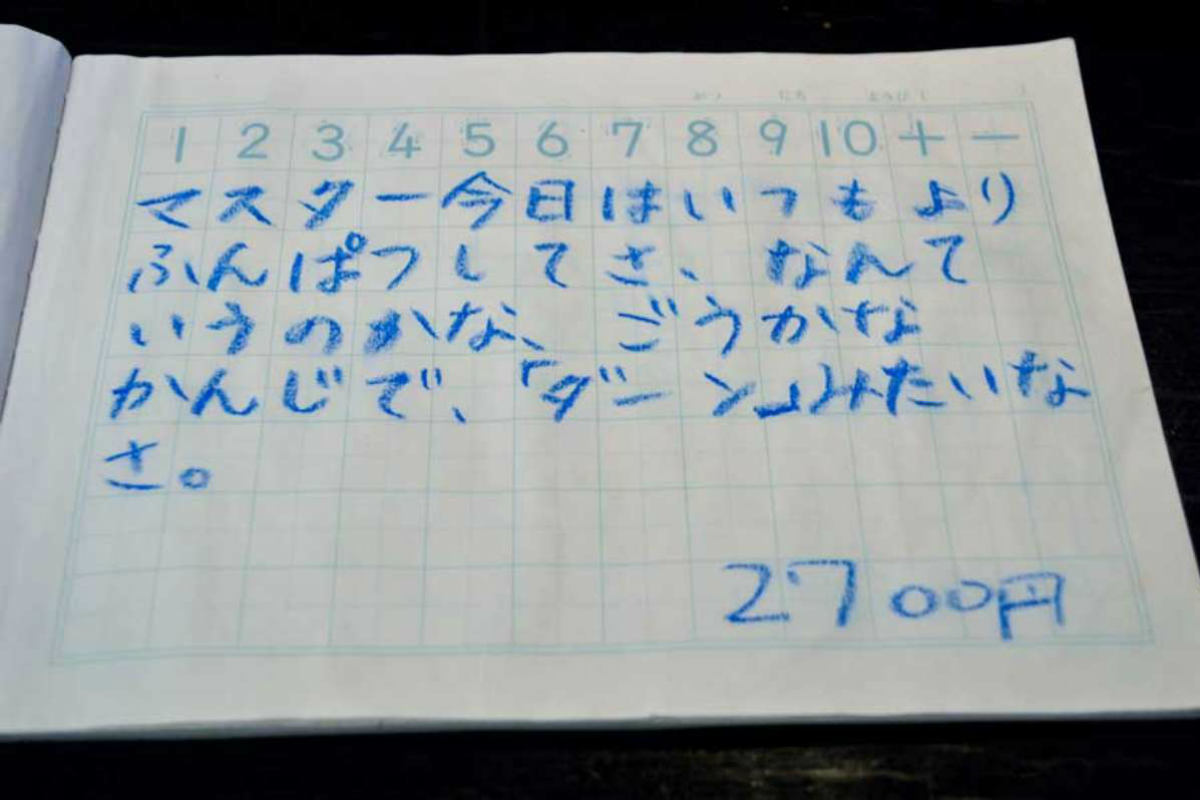 1 2 3 4 5 6 7 8 9 10 + −
マスター今日はいつもより
ふんぱつしてさ、なんて
いうのかな、ごうかな
かんじで、「ダーン」みたいな
さ。
2700円